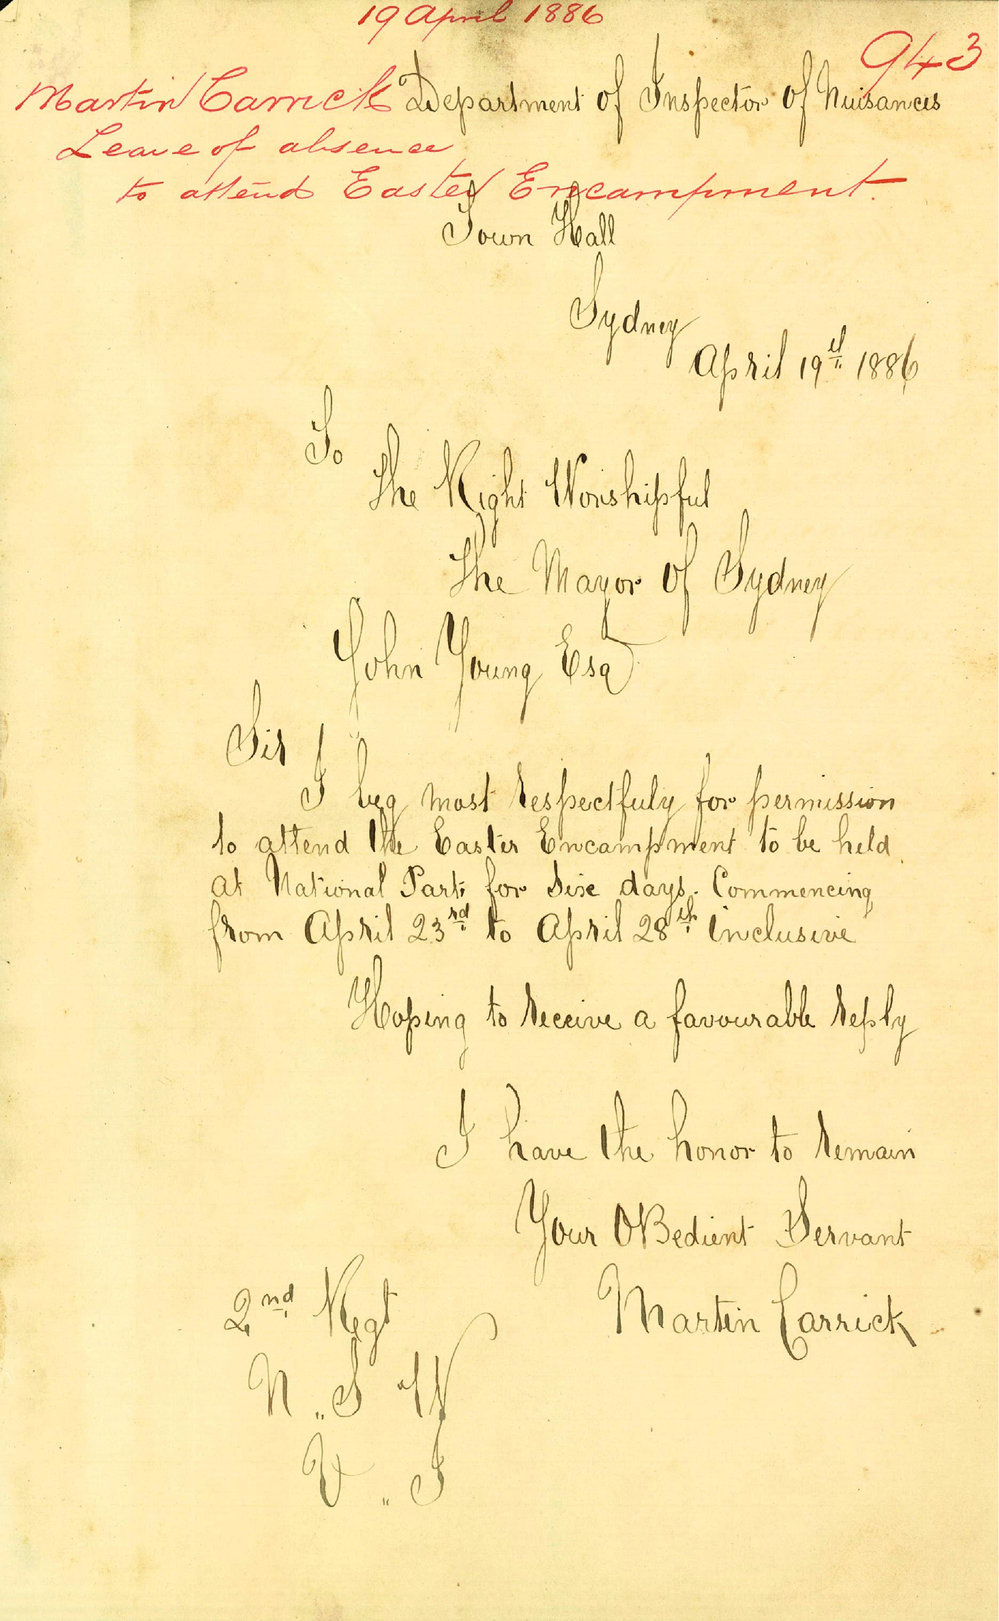 19 April 1886
943
Martin Carrick
Leave of absence
to attend Easter Encampment.
Department of Inspector of Nuisances
Town Hall
Sydney
April 19th 1886
To
The Right Worshipful
The Mayor of Sydney
John Young Esq
Sir
I beg most respectfuly for permission
to attend the Easter Encampment to be held
at National Park for Sixe days. Commencing
from April 23rd to April 28th inclusive
Hoping to receive a favourable reply
I have the honor to remain
Your OBedient Servant
Martin Carrick
2nd Regt
N.. S W
V.. I